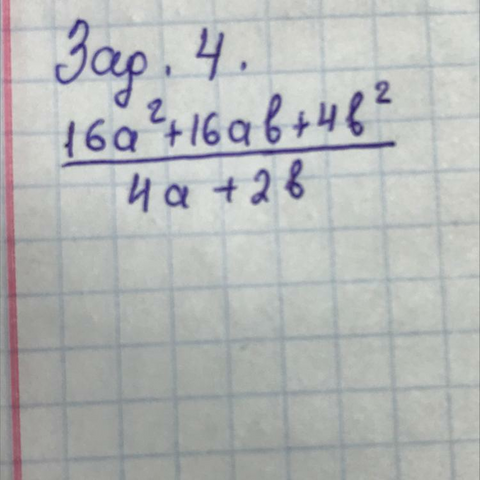 Зад. 4.
16a²+16ab+4b²
4a+2b